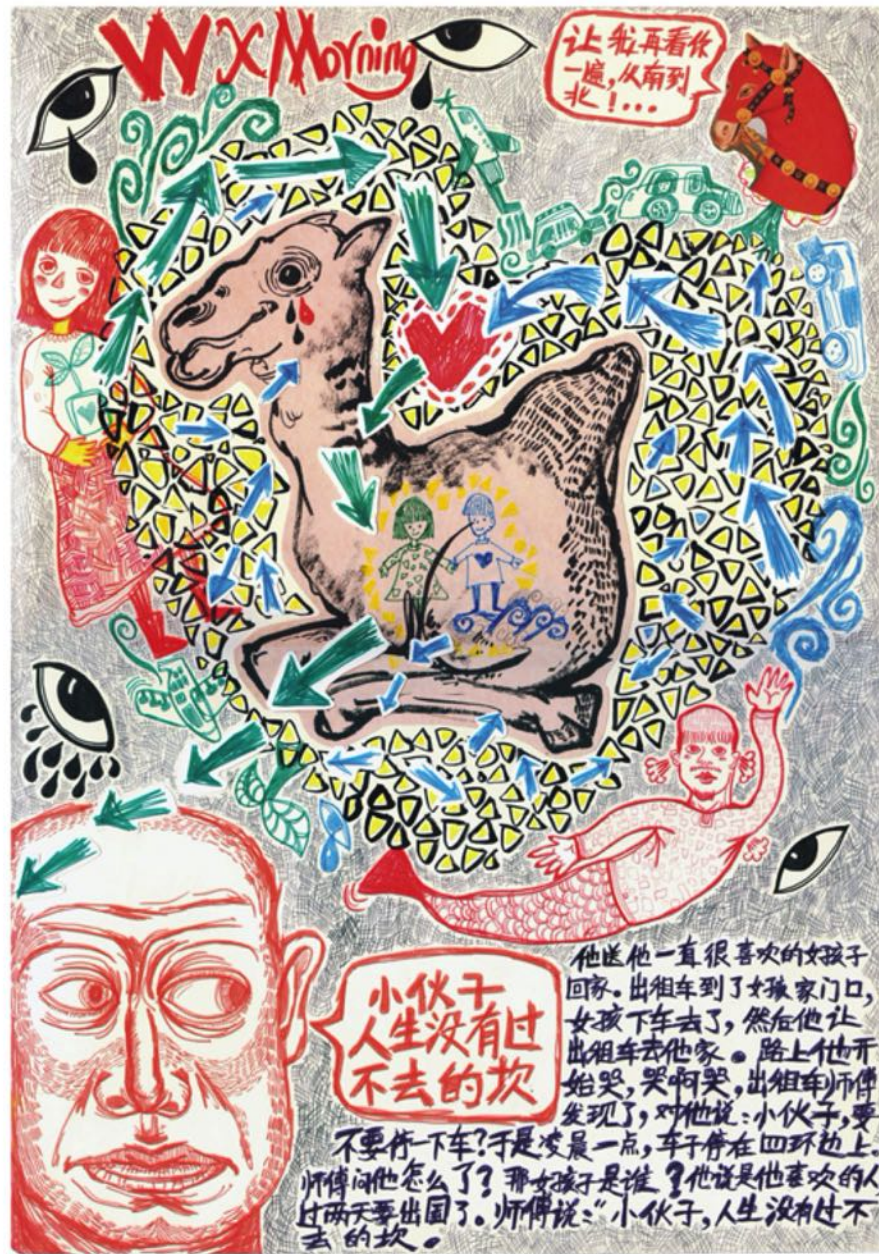 WXMorning
让我再看你
一遍,从南到
北!...
小伙子
人生没有过
不去的坎
他送他一直很喜欢的女孩子
回家。出租车到了女孩家门口,
女孩下车去了,然后他让
出租车去他家。路上他开
始哭,哭啊哭,出租车师傅
发现了,对他说:小伙子,要
不要停一下车?于是凌晨一点,车子停在四环边上。
师傅问他怎么了?那女孩子是谁?他说是他喜欢的人
过两天要出国了。师傅说:“小伙子,人生没有过不
去的坎。